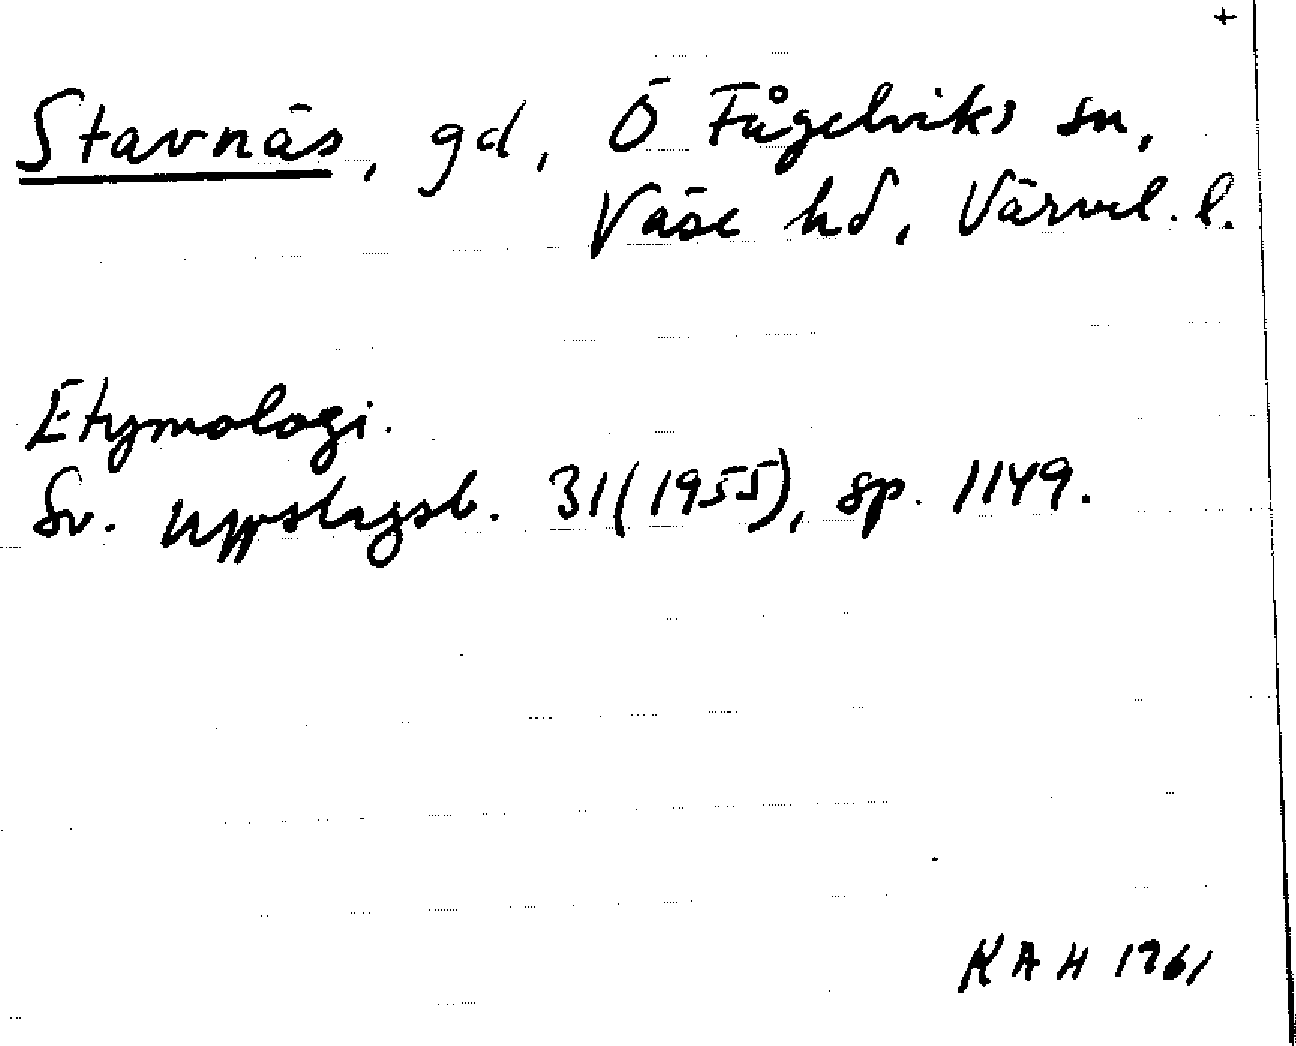 +
Stavnäs, gd, Ö Fågelviks sn,
Väse hd, Värml. l.
Etymologi.
Sv. uppslagsb. 31 (1955), sp. 1149.
KAH 1961